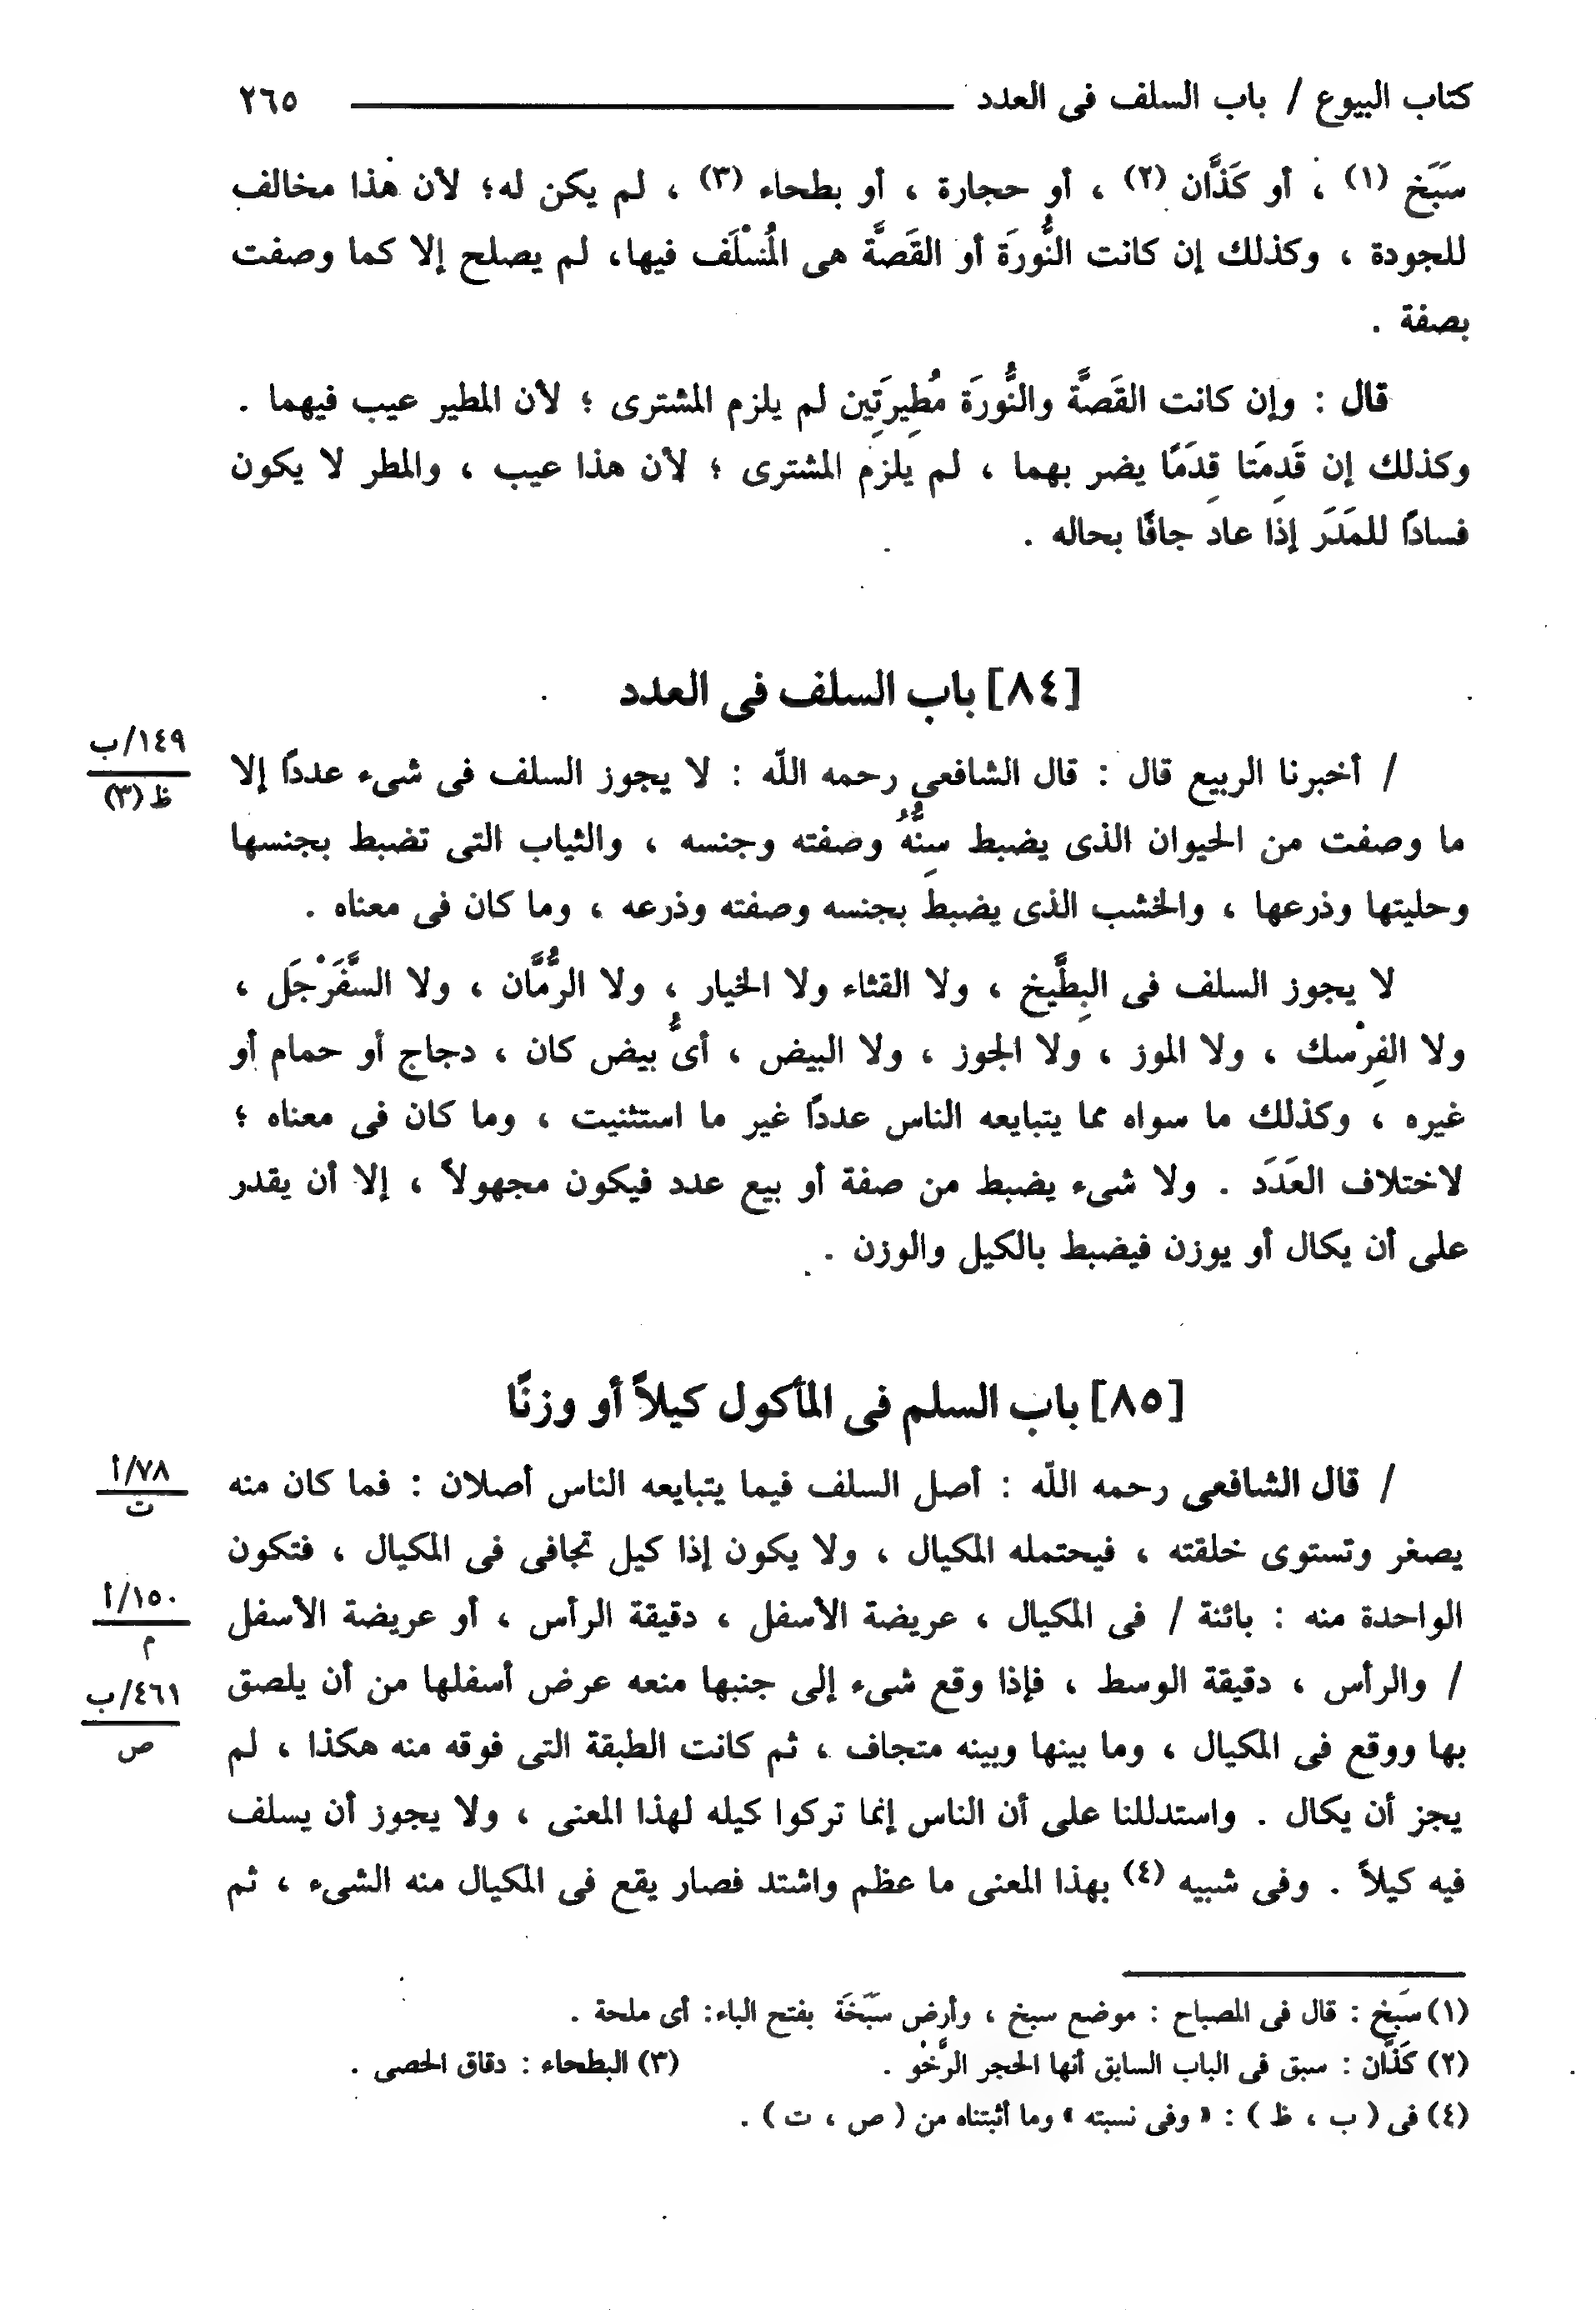 كتاب البيوع / باب السلف فى العدد ٢٦٥
سَبَخ (١) ، أو كَذَّان (٢) ، أو حجارة ، أو بطحاء (٣) ، لم يكن له؛ لأن هذا مخالف
للجودة ، وكذلك إن كانت النُّورَة أو القَصَّة هى المُسْلَف فيها، لم يصلح إلا كما وصفت
بصفة .
قال : وإن كانت القَصَّة والنُّورَة مُطِيرَتِين لم يلزم المشترى ؛ لأن المطير عيب فيهما .
وكذلك إن قَدِمَتا قِدَمًا يضر بهما ، لم يلزم المشترى ؛ لأن هذا عيب ، والمطر لا يكون
فسادًا للمَدَر إذا عاد جافًا بحاله .
[٨٤] باب السلف فى العدد
١٤٩/ب
ظ (٣)
/ أخبرنا الربيع قال : قال الشافعى رحمه اللّه : لا يجوز السلف فى شىء عددًا إلا
ما وصفت من الحيوان الذى يضبط سِنُّهُ وصفته وجنسه ، والثياب التى تضبط بجنسها
وحليتها وذرعها ، والخشب الذى يضبط بجنسه وصفته وذرعه ، وما كان فى معناه .
لا يجوز السلف فى البِطَّيخ ، ولا القثاء ولا الخيار ، ولا الرُّمَّان ، ولا السَّفَرْجَل ،
ولا الفِرْسك ، ولا الموز ، ولا الجوز ، ولا البيض ، أىُّ بيض كان ، دجاج أو حمام أو
غيره ، وكذلك ما سواه مما يتبايعه الناس عددًا غير ما استثنيت ، وما كان فى معناه ؛
لاختلاف العَدَد . ولا شىء يضبط من صفة أو بيع عدد فيكون مجهولاً ، إلا أن يقدر
على أن يكال أو يوزن فيضبط بالكيل والوزن .
[٨٥] باب السلم فى المأكول كيلاً أو وزنًا
٧٨/أ
ت
/ قال الشافعى رحمه اللّه : أصل السلف فيما يتبايعه الناس أصلان : فما كان منه
يصغر وتستوى خلقته ، فيحتمله المكيال ، ولا يكون إذا كيل تجافى فى المكيال ، فتكون
١٥٠/أ
م
الواحدة منه : بائنة / فى المكيال ، عريضة الأسفل ، دقيقة الرأس ، أو عريضة الأسفل
٤٦١/ب
ص
/ والرأس ، دقيقة الوسط ، فإذا وقع شىء إلى جنبها منعه عرض أسفلها من أن يلصق
بها ووقع فى المكيال ، وما بينها وبينه متجاف ، ثم كانت الطبقة التى فوقه منه هكذا ، لم
يجز أن يكال . واستدللنا على أن الناس إنما تركوا كيله لهذا المعنى ، ولا يجوز أن يسلف
فيه كيلاً . وفى شبيه (٤) بهذا المعنى ما عظم واشتد فصار يقع فى المكيال منه الشىء ، ثم
(١) سَبَخ : قال فى المصباح : موضع سبخ ، وأرض سَبَخَة بفتح الباء: أى ملحة .
(٢) كَذَّان : سبق فى الباب السابق أنها الحجر الرَّخْو . (٣) البطحاء : دقاق الحصى .
(٤) فى ( ب ، ظ ) : « وفى نسبته » وما أثبتناه من ( ص ، ت ) .